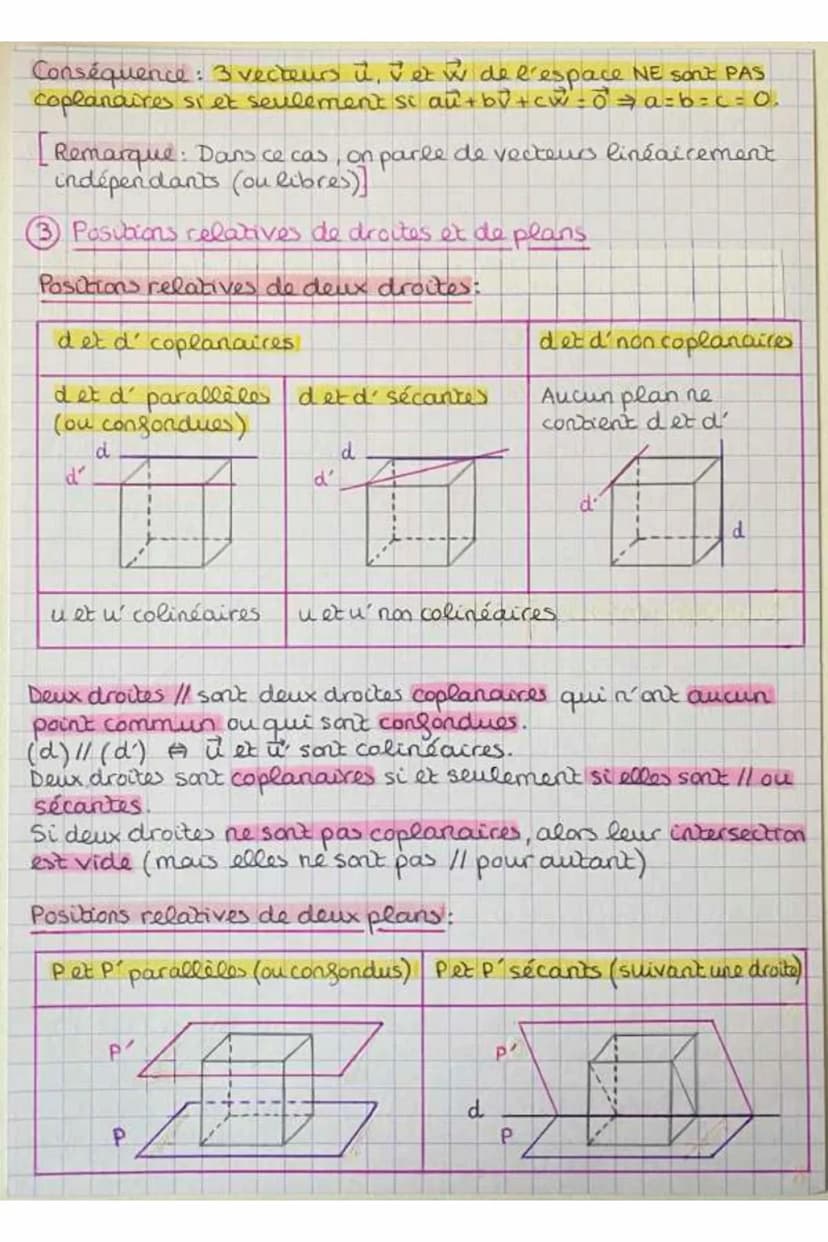 Conséquence : 3 vecteurs u⃗, v⃗ et w⃗ de l'espace NE sont PAS
coplanaires si et seulement si au⃗ + bv⃗ + cw⃗ = 0⃗ ⇒ a = b = c = 0.
[Remarque : Dans ce cas, on parle de vecteurs linéairement
indépendants (ou libres)]
③ Positions relatives de droites et de plans
Positions relatives de deux droites :
d et d' coplanaires
d et d' non coplanaires
d et d' parallèles
(ou confondues)
d et d' sécantes
Aucun plan ne
contient d et d'
d
d'
d
d'
d'
d
u et u' colinéaires
u et u' non colinéaires
Deux droites // sont deux droites coplanaires qui n'ont aucun
point commun ou qui sont confondues.
(d) // (d') ⇔ u⃗ et u⃗' sont colinéaires.
Deux droites sont coplanaires si et seulement si elles sont // ou
sécantes.
Si deux droites ne sont pas coplanaires, alors leur intersection
est vide (mais elles ne sont pas // pour autant)
Positions relatives de deux plans :
P et P' parallèles (ou confondus)
P et P' sécants (suivant une droite)
P'
P
P'
d
P